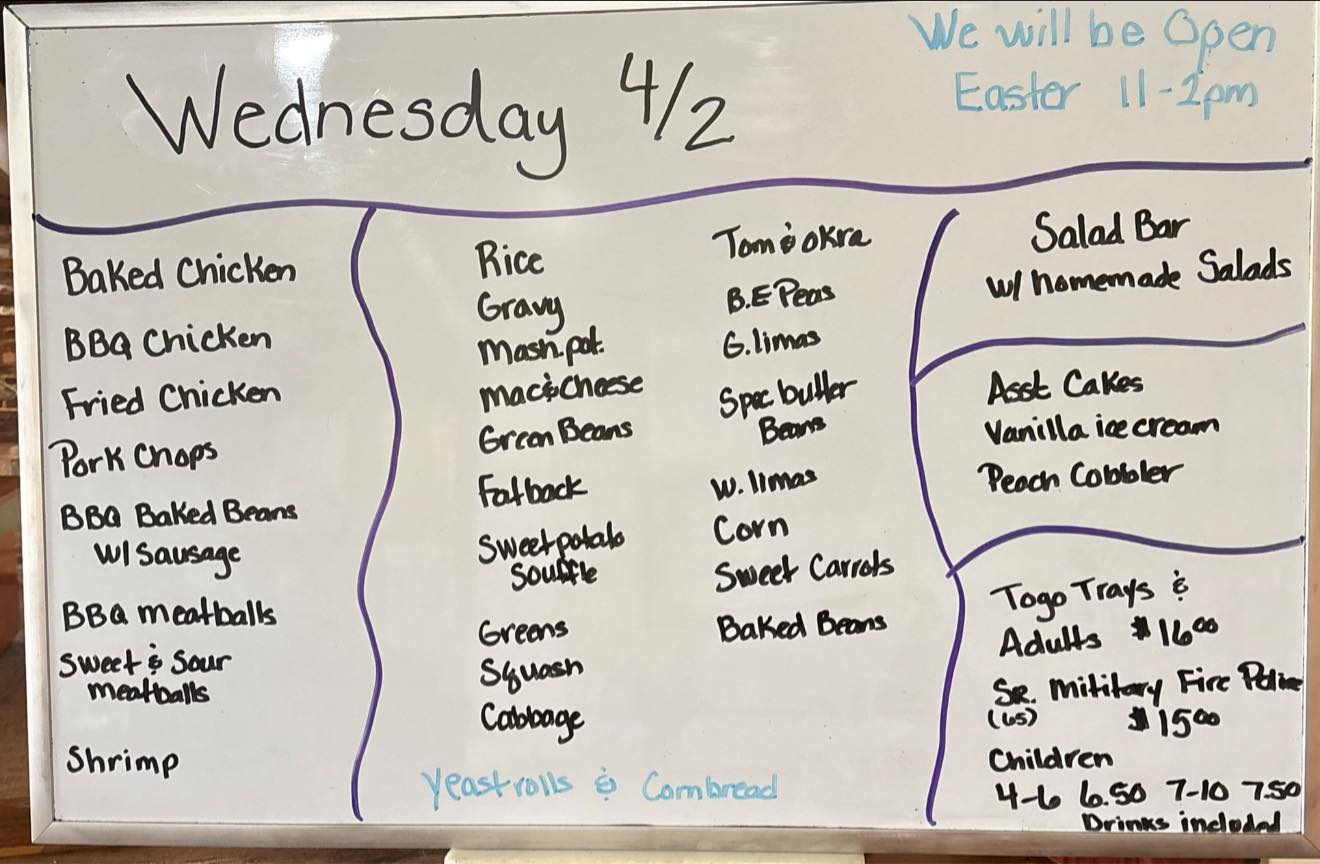 We will be Open
Easter 11-2pm
Wednesday 4/2
Baked Chicken
BBQ Chicken
Fried Chicken
Pork Chops
BBQ Baked Beans
W/ Sausage
BBQ meatballs
Sweet & Sour
meatballs
Shrimp
Rice
Gravy
Mash.pot.
Mac&Cheese
Green Beans
Fatback
Sweetpotato
Souffle
Greens
Squash
Cabbage
Tom & Okra
B.E Peas
G.limas
Spec butter
Beans
W. limas
Corn
Sweet Carrots
Baked Beans
Yeastrolls & Cornbread
Salad Bar
w/ homemade Salads
Asst Cakes
Vanilla ice cream
Peach Cobbler
Togo Trays &
Adults $16.00
Sr. Military Fire Police
(65) $15.00
Children
4-6 6.50 7-10 7.50
Drinks included